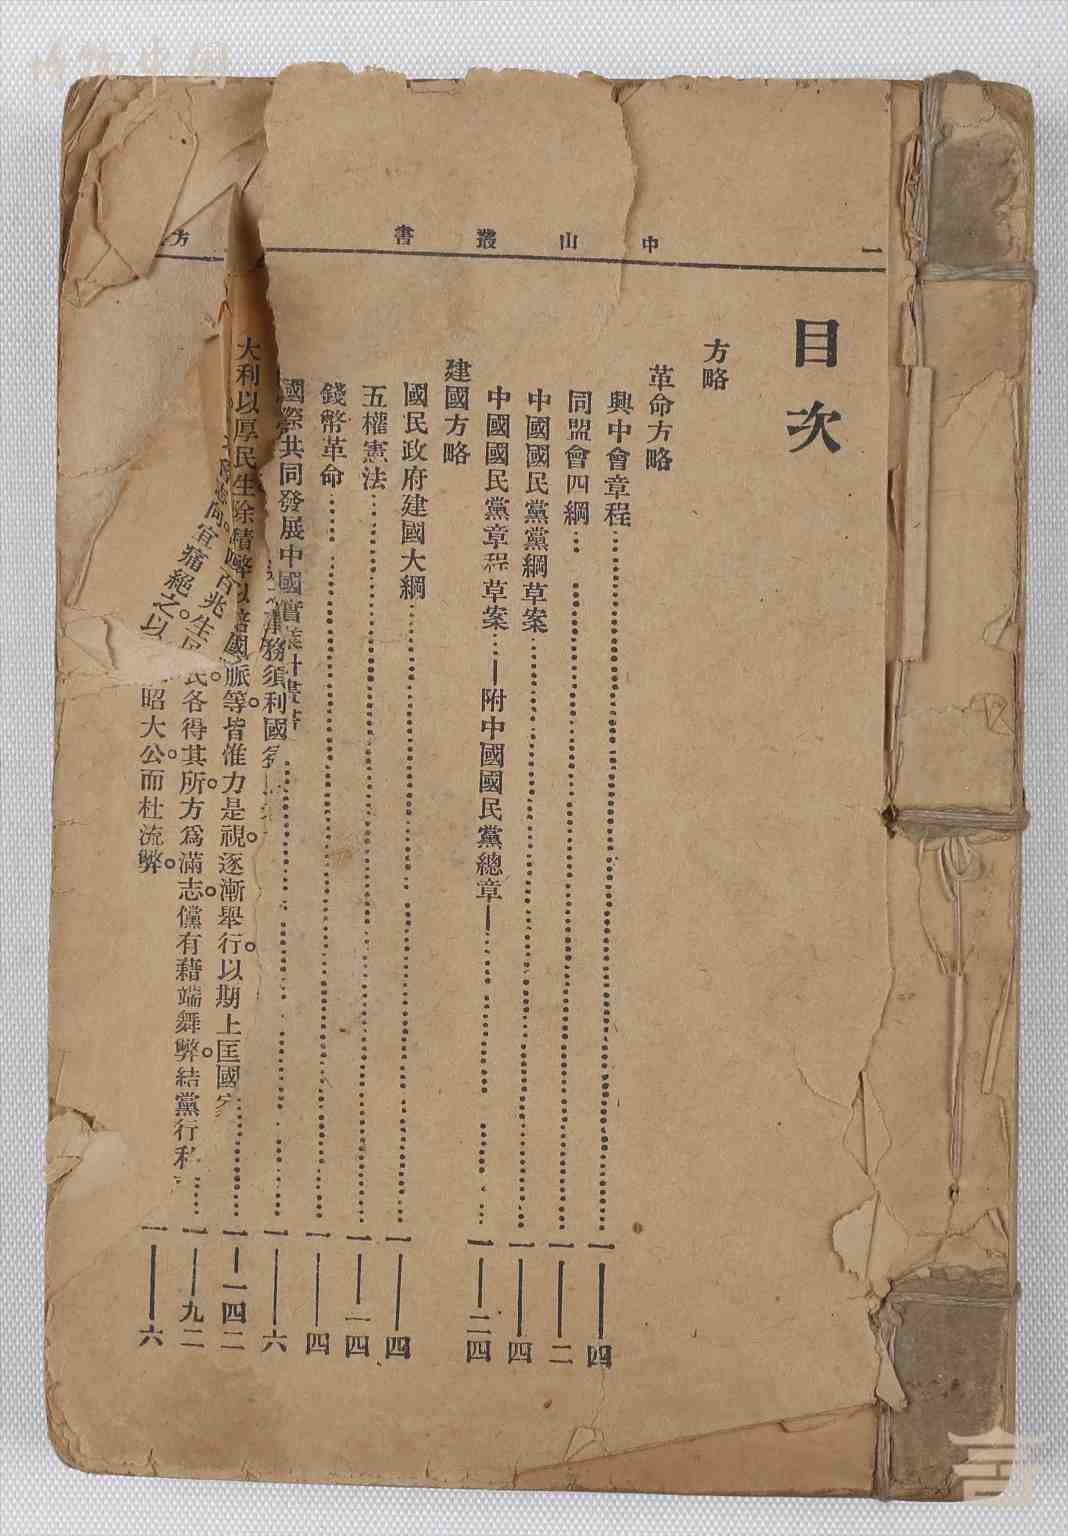 中山叢書
一
方
目次
方略
革命方略
興中會章程……一——四
同盟會四綱……一——二
中國國民黨黨綱草案……一——四
中國國民黨章程草案……—附中國國民黨總章—……一——二四
建國方略
國民政府建國大綱……一——四
五權憲法……一——一四
錢幣革命……一——四
國際共同發展中國實業計畫書……一——六
務須利國
……一—一四二
大利以厚民生除積弊以培國脈等皆惟力是視。逐漸舉行。以期上匡國
……一—九二
百兆生民各得其所。方爲滿志。儻有藉端舞弊。結黨行私
一——六
宜痛絕之。以昭大公。而杜流弊。